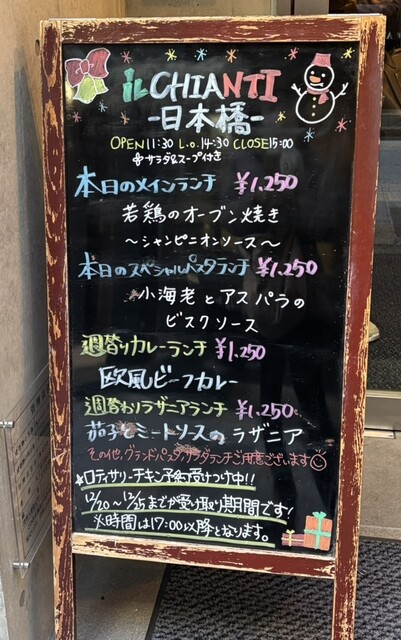 iL CHIANTI
-日本橋-
OPEN 11:30 L.O. 14:30 CLOSE 15:00
サラダ&スープ付き
本日のメインランチ ¥1,250
若鶏のオーブン焼き
〜シャンピニオンソース〜
本日のスペシャルパスタランチ ¥1,250
小海老とアスパラの
ビスクソース
週替りカレーランチ ¥1,250
欧風ビーフカレー
週替わりラザニアランチ ¥1,250
茄子とミートソースのラザニア
その他、グランドパスタ、サラダランチご用意ございます
ロティサリーチキン予約受けつけ中!!
12/20〜12/25までが受け取り期間です!
※時間は17:00以降となります。